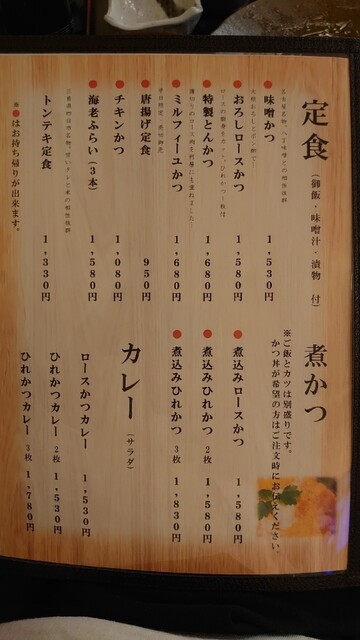 定食（御飯・味噌汁・漬物 付）
●味噌かつ 1,530円
●おろしロースかつ 1,580円
●特製とんかつ 1,680円
●ミルフィーユかつ 1,680円
●唐揚げ定食 950円
●チキンかつ 1,080円
●海老ふらい（3本） 1,580円
トンテキ定食 1,330円
※●はお持ち帰りが出来ます。
煮かつ
※ご飯とカツは別盛りです。
かつ丼が希望の方はご注文時にお伝えください。
●煮込みロースかつ 1,580円
●煮込みひれかつ 2枚 1,580円
●煮込みひれかつ 3枚 1,830円
カレー（サラダ）
ロースかつカレー 1,530円
ひれかつカレー 2枚 1,530円
ひれかつカレー 3枚 1,780円